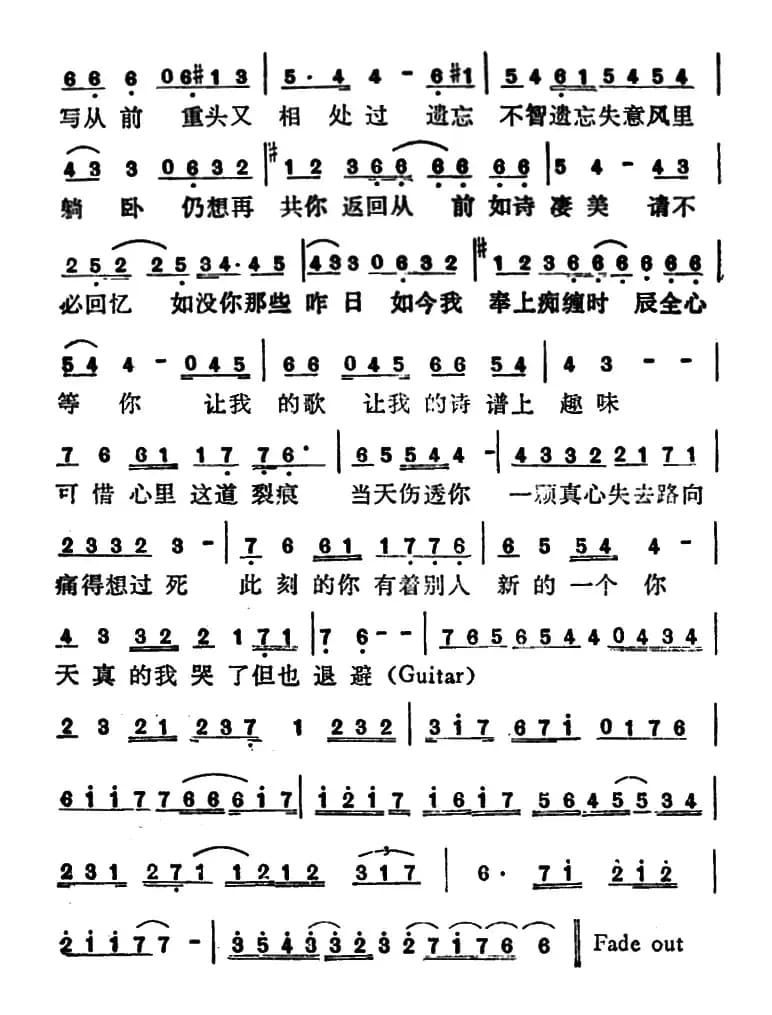 6 6 6 0 6 #1 3 | 5 · 4 4 - 6 #1 | 5 4 6 1 5 4 5 4 |
写从前 重头又 相处过 遗忘 不智遗忘失意风里
4 3 3 0 6 3 2 | #1 2 3 6 6 6 6 6 6 | 5 4 - 4 3
躺 卧 仍想再 共你 返回从 前如诗 凄美 请不
2 5 2 2 5 3 4 · 4 5 | 4 3 3 0 6 3 2 | #1 2 3 6 6 6 6 6 6 |
必回忆 如没你那些昨日 如今我 奉上痴缠时 辰全心
5 4 4 - 0 4 5 | 6 6 0 4 5 6 6 5 4 | 4 3 - - |
等 你 让我 的歌 让我的诗 谱上 趣味
7 6 6 1 1 7 7 6 · | 6 5 5 4 4 - | 4 3 3 2 2 1 7 1
可惜心里这道裂痕 当天伤透你 一颗真心失去路向
2 3 3 2 3 - | 7 6 6 1 1 7 7 6 | 6 5 5 4 4 -
痛得想过死 此刻的你有着别人 新的一个你
4 3 3 2 2 1 7 1 | 7 6 - - | 7 6 5 6 5 4 4 0 4 3 4
天真的我哭了但也 退避（Guitar）
2 3 2 1 2 3 7 1 2 3 2 | 3 1 7 6 7 1 0 1 7 6 |
6 1 1 7 7 6 6 6 1 7 | 1 2 1 7 1 6 1 7 5 6 4 5 5 3 4 |
2 3 1 2 7 1 1 2 1 2 3 1 7 | 6 · 7 1 2 1 2 |
2 1 1 7 7 - | 3 5 4 3 3 2 3 2 7 1 7 6 6 ‖ Fade out